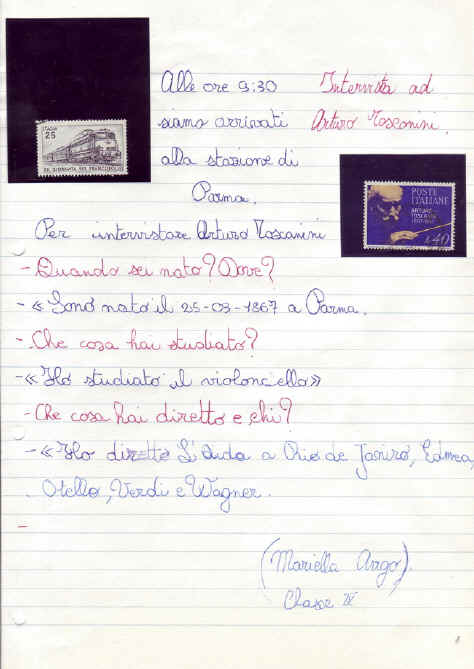 Alle ore 9:30
siamo arrivati
alla stazione di
Parma.
Intervista ad
Arturo Toscanini.
ITALIA
25
XI. GIORNATA DEL FRANCOBOLLO
POSTE
ITALIANE
ARTURO
TOSCANINI
L.40
Per intervistare Arturo Toscanini
- Quando sei nato? Dove?
- « Sono nato il 25-03-1867 a Parma.
- Che cosa hai studiato?
- « Ho studiato il violoncello »
- Che cosa hai diretto e chi?
- « Ho diretto L'Aida a Rio de Janiro, Edmea,
Otello, Verdi e Wagner.
-
(Mariella Argo).
Classe IV